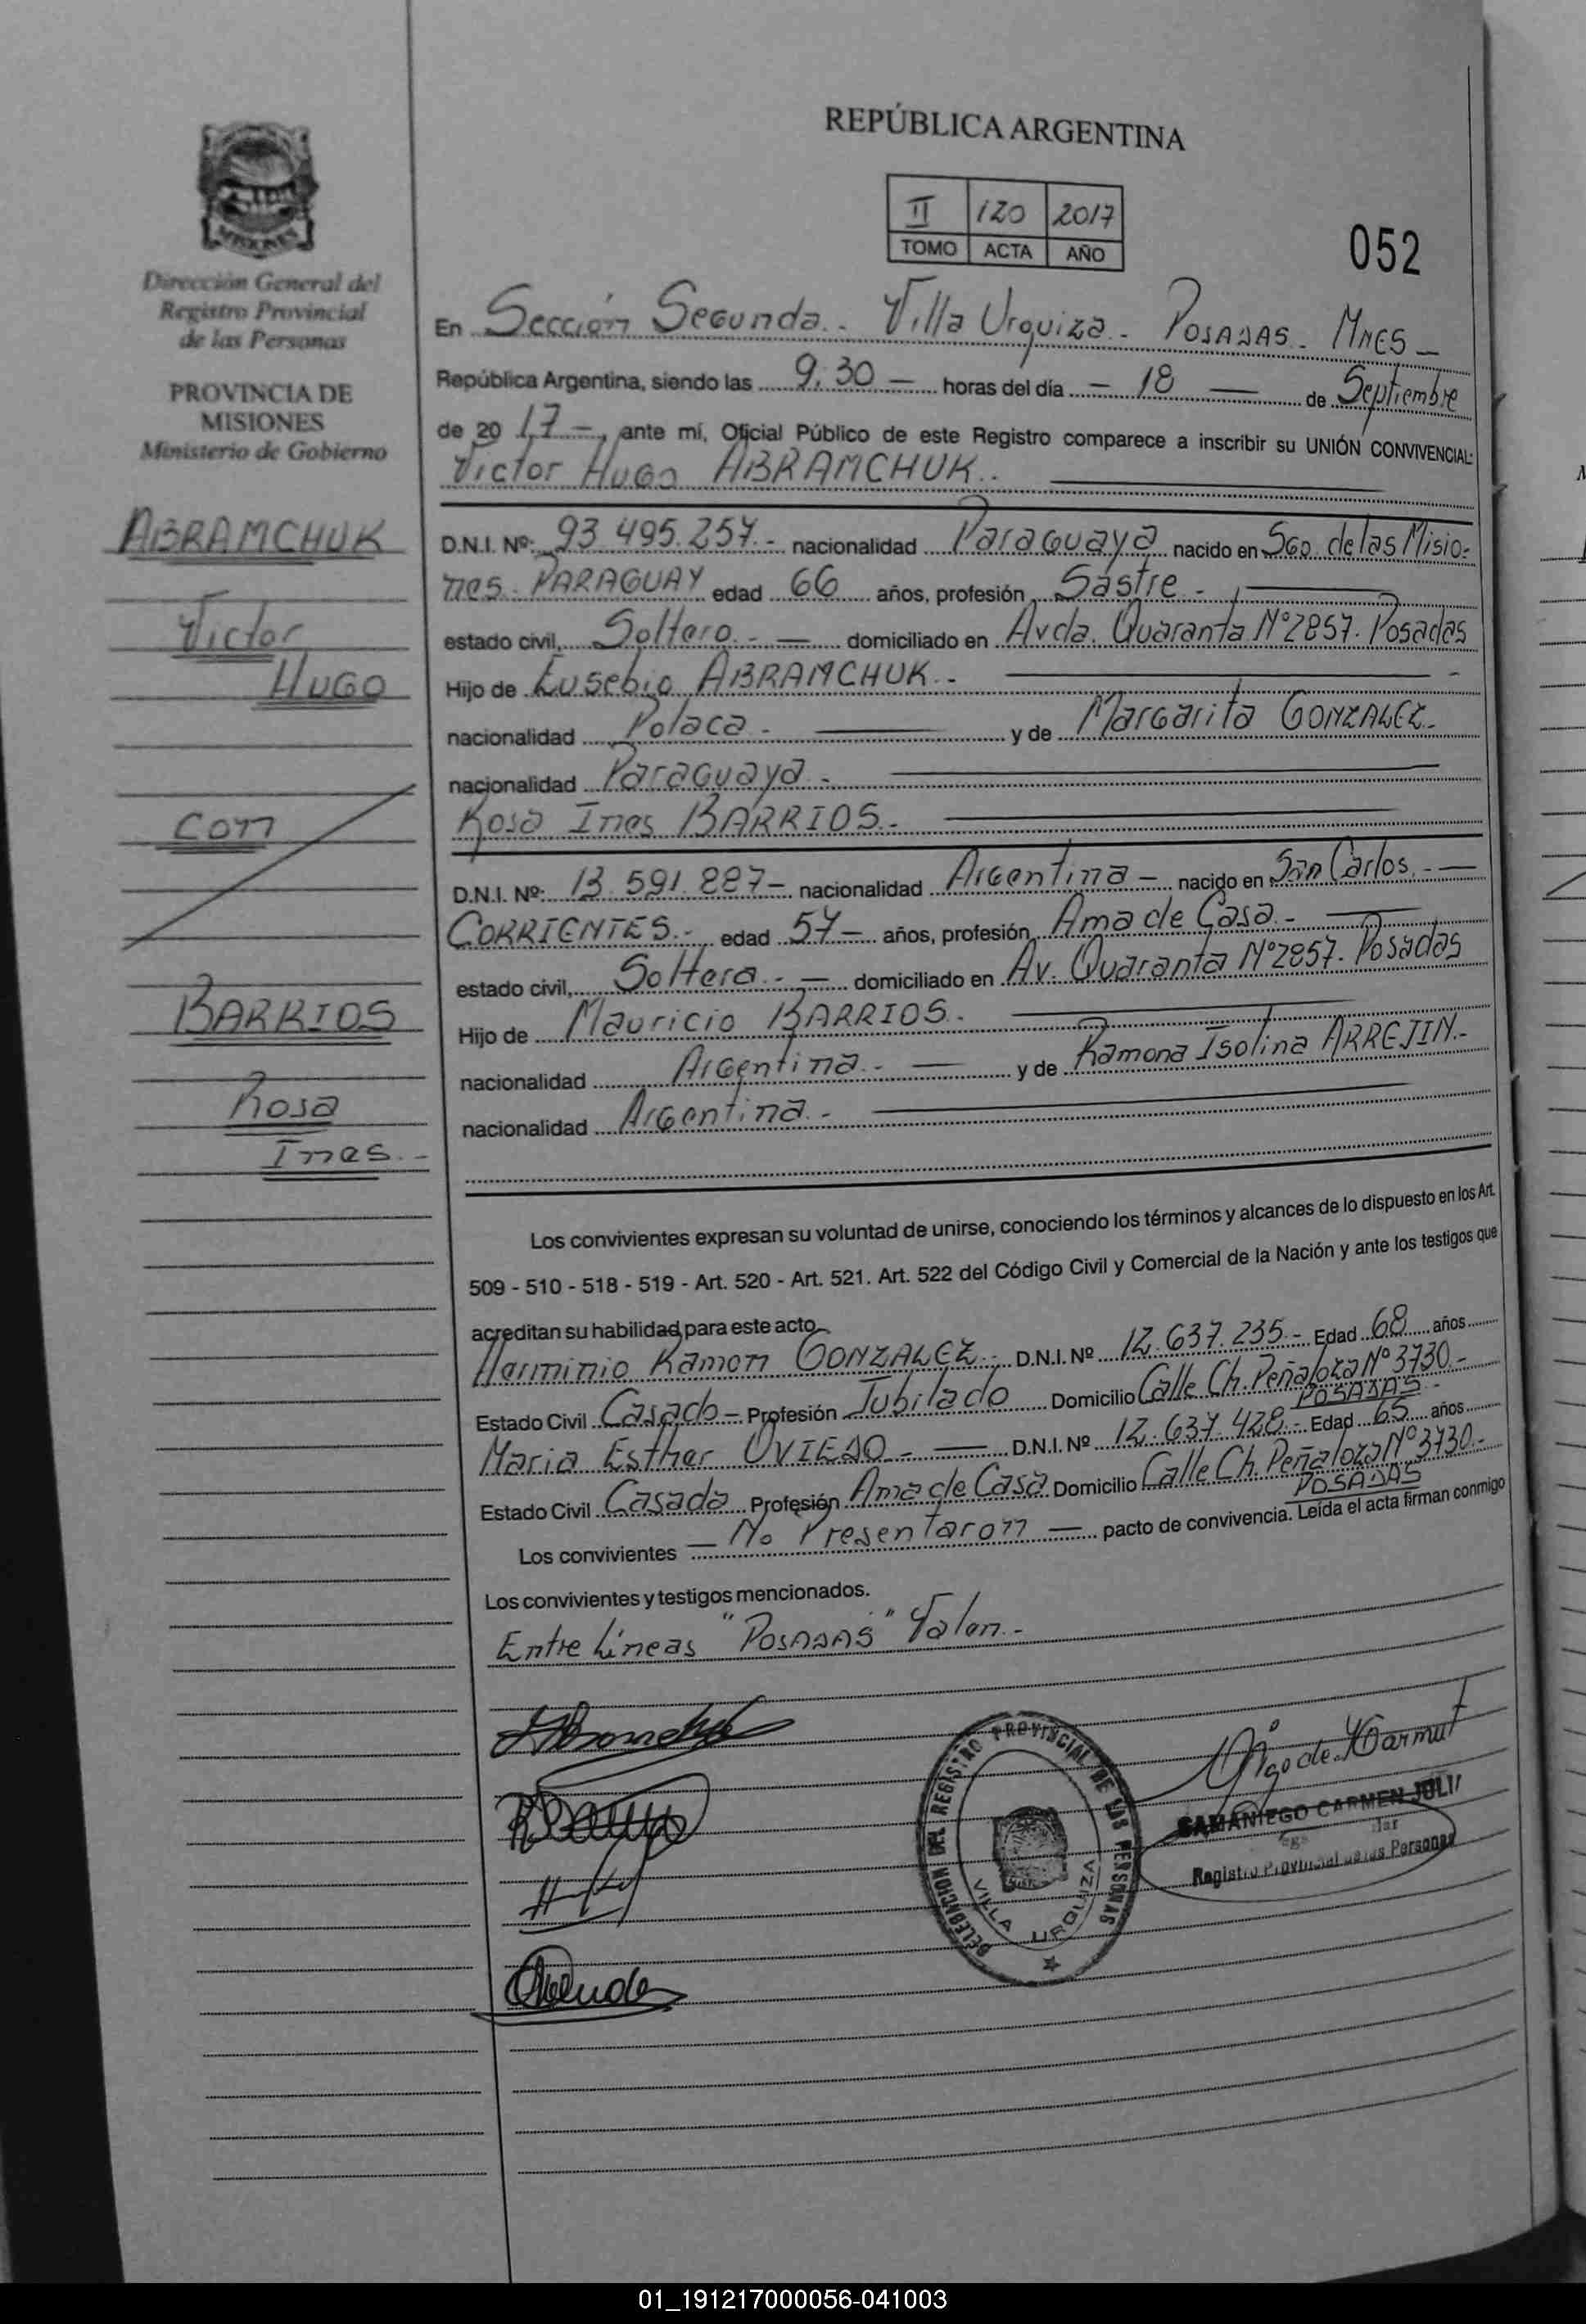 REPÚBLICA ARGENTINA
II 120 2017
TOMO ACTA AÑO
052
MISIONES
Dirección General del
Registro Provincial
de las Personas
PROVINCIA DE
MISIONES
Ministerio de Gobierno
ABRAMCHUK
Victor
HUGO
Con
BARRIOS
Rosa
Ines.-
En Sección Segunda.- Villa Urquiza.- POSADAS.- MNES-
República Argentina, siendo las 9:30 - horas del día - 18 - de Septiembre
de 20 17 -, ante mí, Oficial Público de este Registro comparece a inscribir su UNIÓN CONVIVENCIAL:
Victor Hugo ABRAMCHUK.-
D.N.I. Nº: 93.495.257.- nacionalidad Paraguaya nacido en Sgo. de las Misio-
nes. PARAGUAY edad 66 años, profesión Sastre.-
estado civil, Soltero.- domiciliado en Avda. Quaranta Nº2857. Posadas
Hijo de Eusebio ABRAMCHUK.-
nacionalidad Polaca.- y de Margarita GONZALEZ.-
nacionalidad Paraguaya.-
Rosa Ines BARRIOS.-
D.N.I. Nº: 13.591.887- nacionalidad Argentina - nacido en San Carlos.-
CORRIENTES.- edad 57- años, profesión Ama de Casa.-
estado civil, Soltera.- domiciliado en Av. Quaranta Nº2857. Posadas
Hijo de Mauricio BARRIOS.-
nacionalidad Argentina.- y de Ramona Isolina ARREJIN.-
nacionalidad Argentina.-
Los convivientes expresan su voluntad de unirse, conociendo los términos y alcances de lo dispuesto en los Art.
509 - 510 - 518 - 519 - Art. 520 - Art. 521. Art. 522 del Código Civil y Comercial de la Nación y ante los testigos que
acreditan su habilidad para este acto
Herminio Ramon GONZALEZ.- D.N.I. Nº 12.637.235.- Edad 68 años
Estado Civil Casado - Profesión Jubilado Domicilio Calle Ch. Peñaloza Nº 3730.-
POSADAS.-
Maria Esther OVIEDO.- D.N.I. Nº 12.637.428.- Edad 65 años
Estado Civil Casada Profesión Ama de Casa Domicilio Calle Ch. Peñaloza Nº3730.-
POSADAS
Los convivientes - No Presentaron - pacto de convivencia. Leída el acta firman conmigo
Los convivientes y testigos mencionados.
Entre Líneas "POSADAS" Valen.-
DELEGACION DEL REGISTRO PROVINCIAL DE LAS PERSONAS
VILLA URQUIZA
SAMANIEGO CARMEN JULI
Registro Provincial de las Personas
01_191217000056-041003